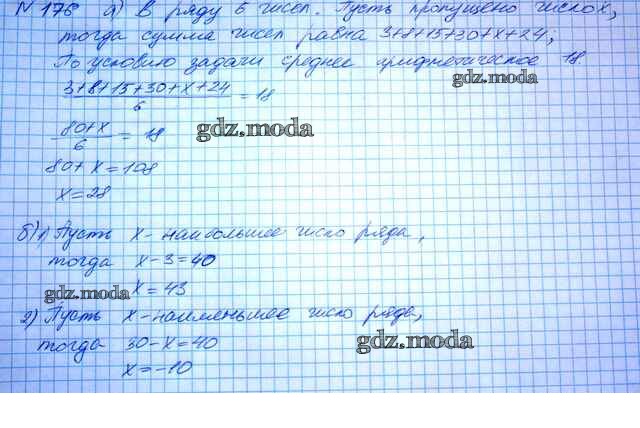 № 176 а) В ряду 6 чисел. Пусть пропущено число х,
тогда сумма чисел равна 3+8+15+30+х+24;
По условию задачи среднее арифметическое 18.
gdz.moda
3+8+15+30+х+24
6 = 18
80+х
6 = 18
gdz.moda
80+х=108
х=28
б) 1) Пусть х - наибольшее число ряда,
тогда х-3=40
gdz.moda
х=43
2) Пусть х - наименьшее число ряда,
тогда 30-х=40
gdz.moda
х=-10